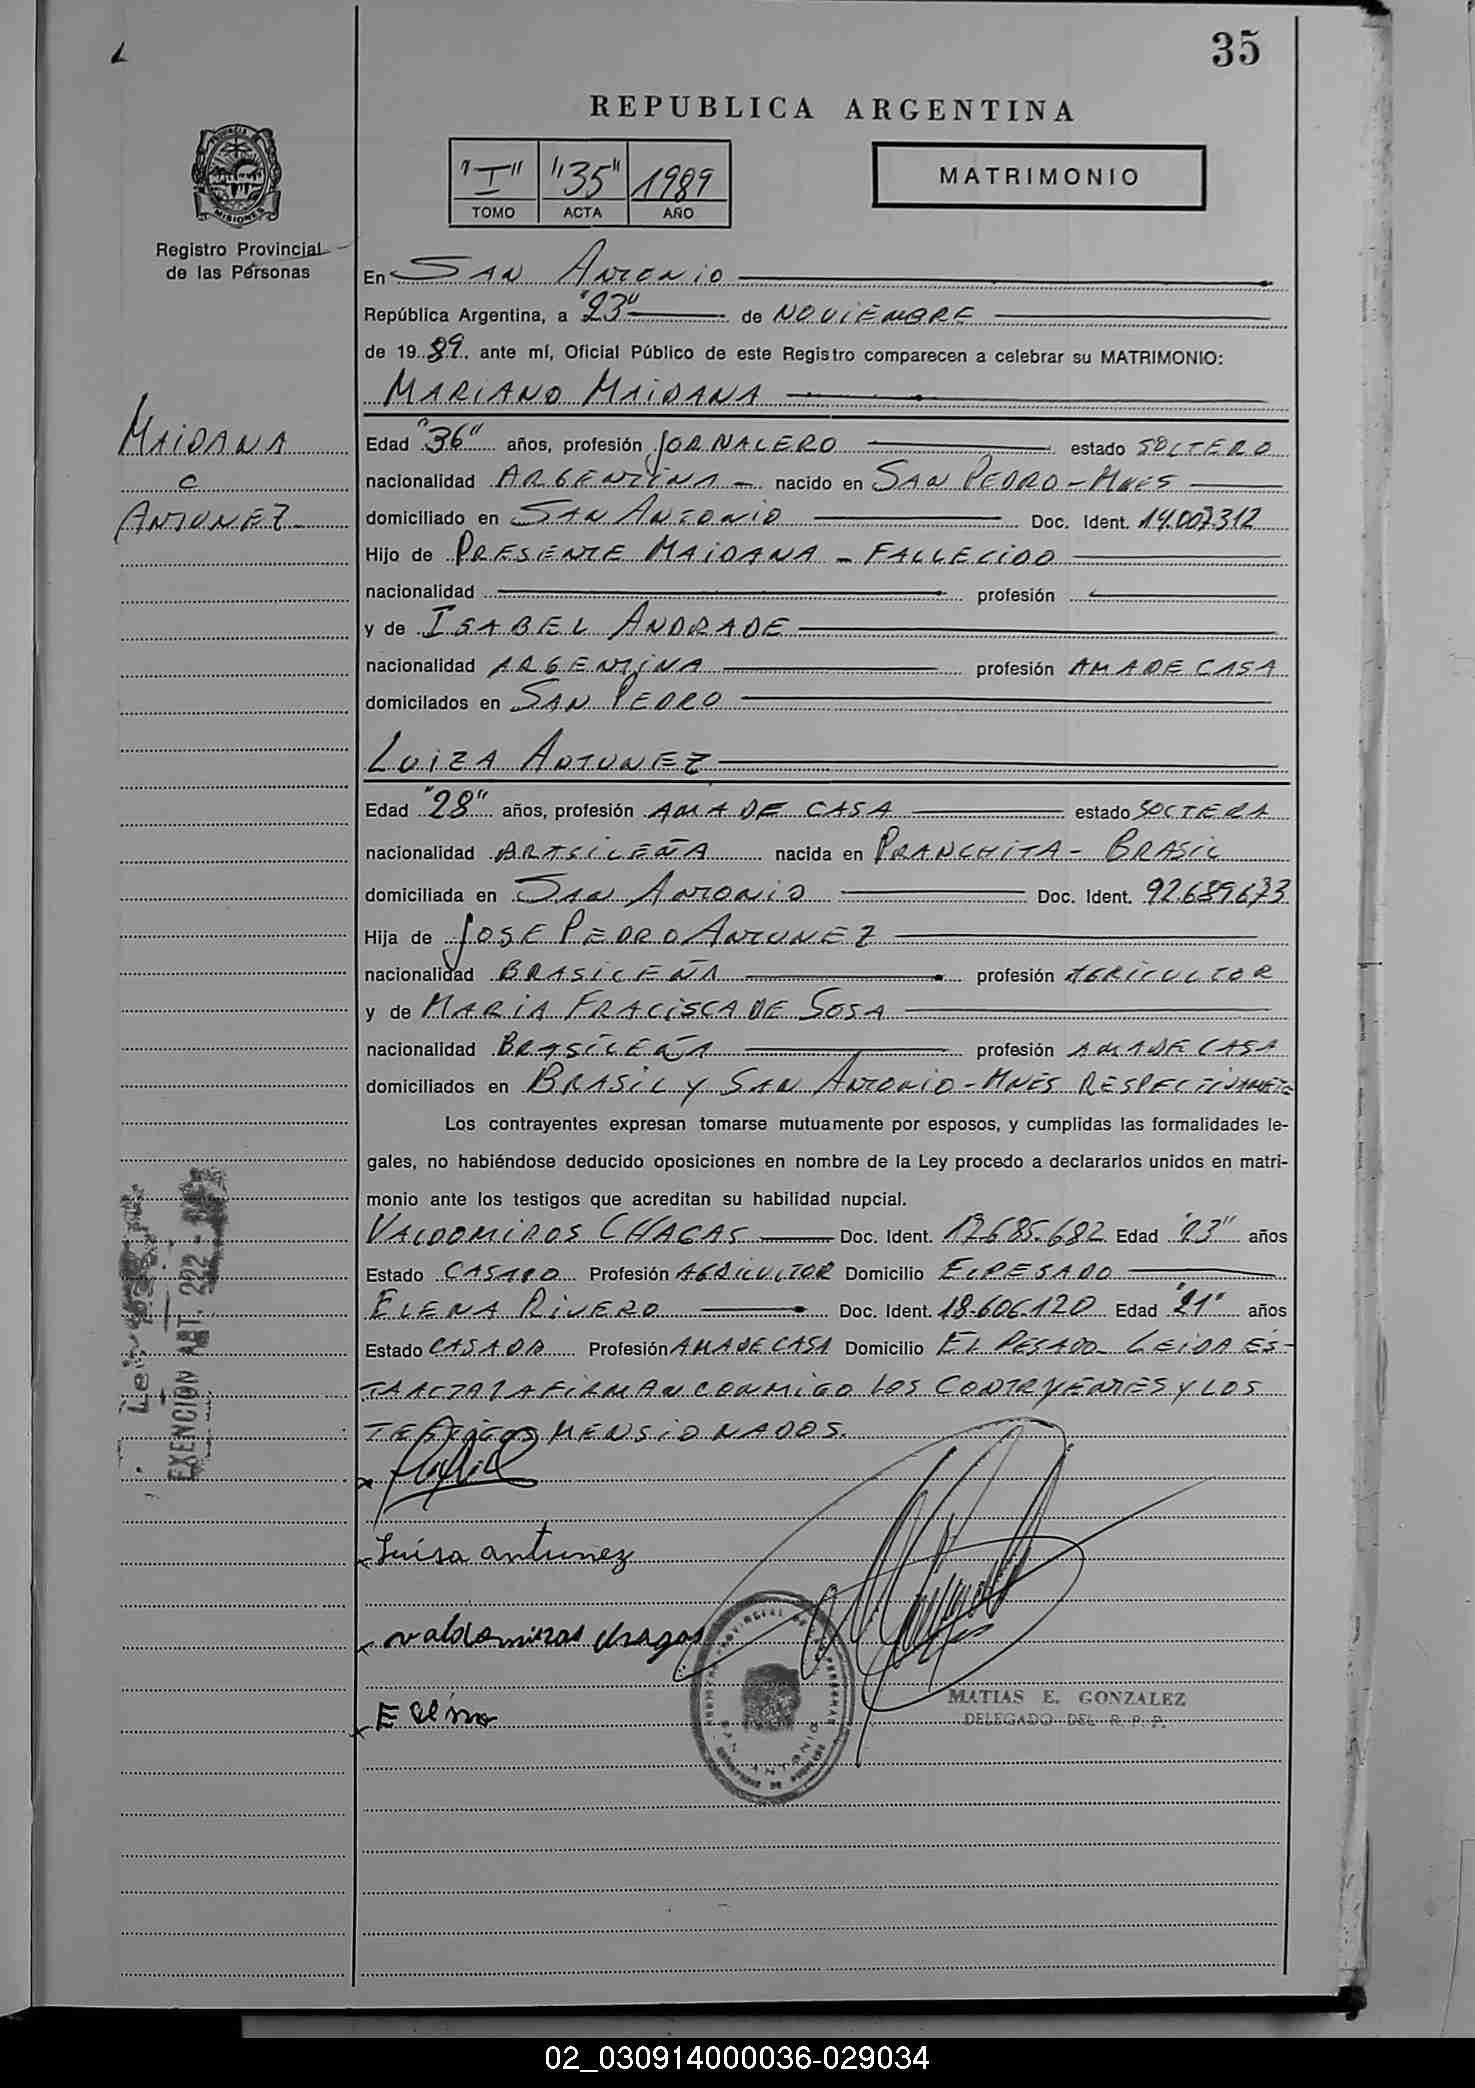 35
REPUBLICA ARGENTINA
"I" "35" 1989
TOMO ACTA AÑO
MATRIMONIO
PROVINCIA DE
MISIONES
Registro Provincial
de las Personas
En SAN ANTONIO
República Argentina, a "23" de NOVIEMBRE
de 1989. ante mí, Oficial Público de este Registro comparecen a celebrar su MATRIMONIO:
MARIANO MAIDANA
MAIDANA
C
ANTUNEZ
Edad "36" años, profesión JORNALERO estado SOLTERO
nacionalidad ARGENTINA - nacido en SAN PEDRO - MNES
domiciliado en SAN ANTONIO Doc. Ident. 14.007.312
Hijo de PRESENTE MAIDANA - FALLECIDO
nacionalidad profesión
y de ISABEL ANDRADE
nacionalidad ARGENTINA profesión AMA DE CASA
domicilados en SAN PEDRO
LUIZA ANTUNEZ
Edad "28" años, profesión AMA DE CASA estado SOLTERA
nacionalidad BRASILEÑA nacida en PRANCHITA - BRASIL
domiciliada en SAN ANTONIO Doc. Ident. 92.689.673
Hija de JOSE PEDRO ANTUNEZ
nacionalidad BRASILEÑA profesión AGRICULTOR
y de MARIA FRACISCA DE SOSA
nacionalidad BRASILEÑA profesión AMA DE CASA
domiciliados en BRASIL Y SAN ANTONIO - MNES RESPECTIVAMETE
Los contrayentes expresan tomarse mutuamente por esposos, y cumplidas las formalidades le-
gales, no habiéndose deducido oposiciones en nombre de la Ley procedo a declararlos unidos en matri-
monio ante los testigos que acreditan su habilidad nupcial.
VALDOMIROS CHAGAS Doc. Ident. 17.685.682 Edad "23" años
Estado CASADO Profesión AGRICULTOR Domicilio EL PESADO
ELENA RIVERO Doc. Ident. 18.606.120 Edad "21" años
Estado CASADA Profesión AMA DE CASA Domicilio EL PESADO - LEIDA ES-
TA ACTA LA FIRMAN CONMIGO LOS CONTRYENTES Y LOS
TESTIGOS MENSIONADOS.
EXENCION ART. 222
Luisa antunez
valdomiros chagas
MATIAS E. GONZALEZ
DELEGADO DEL R. P. P.
SAN ANTONIO
02_030914000036-029034